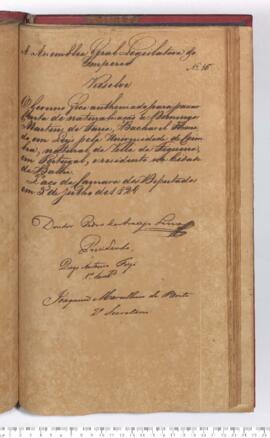 A Assemblea Geral Legislativa do
Imperio
Nº 16
Resolve
O Governo fica authorisado para passar
Carta de naturalisação a Domingos
Martins de Faria, Bacharel Forma
do em Leis pela Universidade de Coim
bra, natural de Villa de Figueiró
em Portugal, e residente na Cidade
da Bahia.
Paço da Camara dos Deputados
em 5 de Julho de 18
Doutor Pedro de Araujo Lima
Presidente
Diogo Antonio Feijó
1º Secretº
Joaquim Marcellino de Brito
2º Secretario